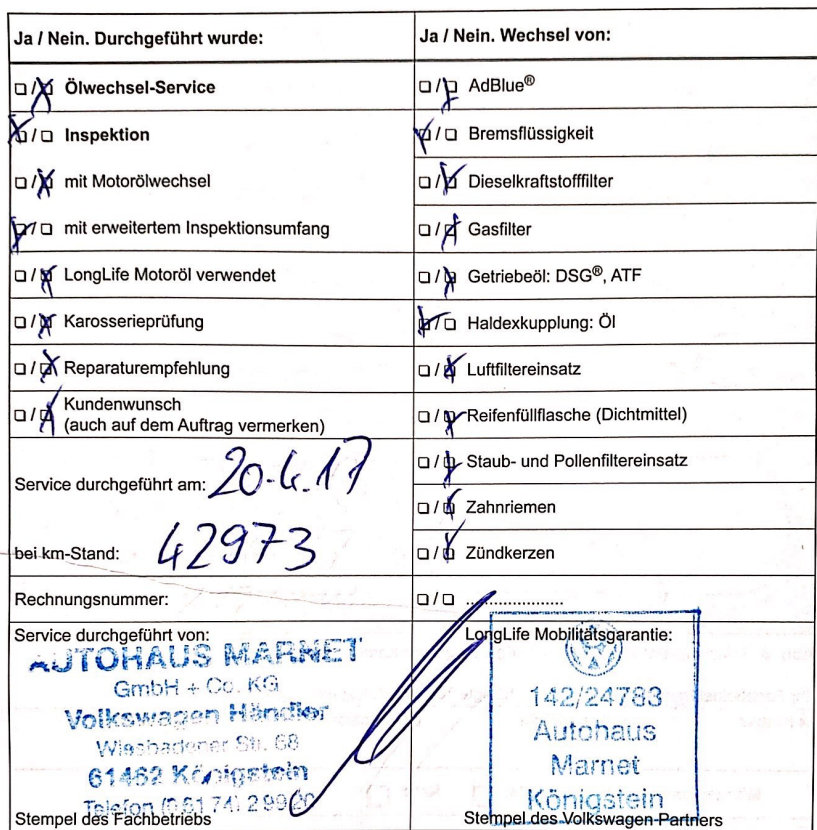 Ja / Nein. Durchgeführt wurde:
☐/☒ Ölwechsel-Service
☒/☐ Inspektion
☐/☒ mit Motorölwechsel
☒/☐ mit erweitertem Inspektionsumfang
☐/☒ LongLife Motoröl verwendet
☐/☒ Karosserieprüfung
☐/☒ Reparaturempfehlung
☐/☒ Kundenwunsch
(auch auf dem Auftrag vermerken)
Service durchgeführt am: 20.4.17
bei km-Stand: 42973
Rechnungsnummer:
Service durchgeführt von:
AUTOHAUS MARNET
GmbH + Co. KG
Volkswagen Händler
Wiesbadener Str. 68
61462 Königstein
Telefon (0 61 74) 2 99 20
Stempel des Fachbetriebs
Ja / Nein. Wechsel von:
☐/☒ AdBlue®
☒/☐ Bremsflüssigkeit
☐/☒ Dieselkraftstofffilter
☐/☒ Gasfilter
☐/☒ Getriebeöl: DSG®, ATF
☒/☐ Haldexkupplung: Öl
☐/☒ Luftfiltereinsatz
☐/☒ Reifenfüllflasche (Dichtmittel)
☐/☒ Staub- und Pollenfiltereinsatz
☐/☒ Zahnriemen
☐/☒ Zündkerzen
☐/☐ .....................
LongLife Mobilitätsgarantie:
142/24783
Autohaus
Marnet
Königstein
Stempel des Volkswagen-Partners